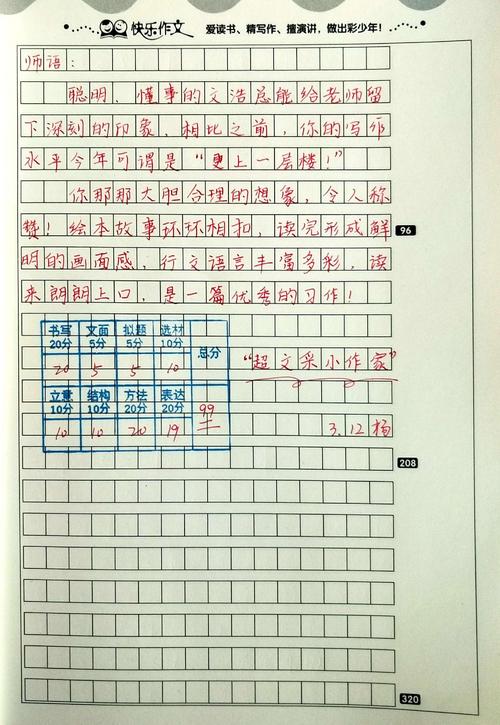 快乐作文 爱读书、精写作、擅演讲，做出彩少年！
师语：
聪明、懂事的文浩总能给老师留
下深刻的印象，相比之前，你的写作
水平今年可谓是“更上一层楼！”
你那那大胆合理的想象，令人称
赞！绘本故事环环相扣，读完形成鲜
96
明的画面感，行文语言丰富多彩，读
来朗朗上口，是一篇优秀的习作！
书写 文面 拟题 选材 总分
20分 5分 5分 10分
20 5 5 10
“超文采小作家”
立意 结构 方法 表达
10分 10分 20分 20分
99
10 10 20 19
3.12杨
208
320